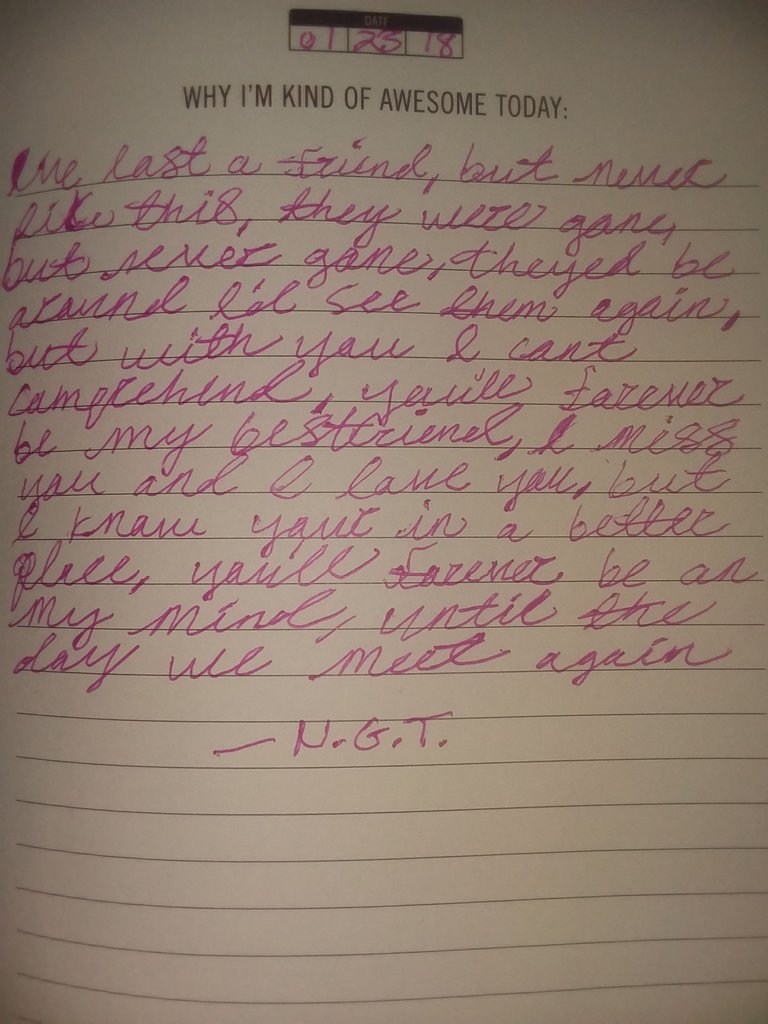 DATE
01 23 18
WHY I'M KIND OF AWESOME TODAY:
I've lost a friend, but never
like this, they were gone,
but never gone, theyed be
around I'd see them again,
but with you I cant
comprehend, you'll forever
be my bestfriend, I miss
you and I love you, but
I know your in a better
place, you'll forever be on
my mind, until the
day we meet again
— N.G.T.